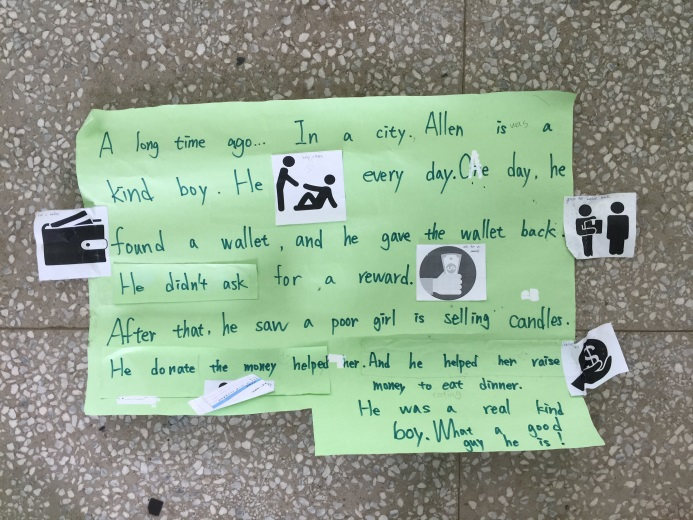 A long time ago... In a city. Allen is was a
kind boy. He every day. One day, he
found a wallet, and he gave the wallet back.
He didn't ask for a reward.
After that, he saw a poor girl is selling candles.
He donate the money helped her. And he helped her raise
money to eat dinner.
eating
He was a real kind
boy. What a good
guy he is!